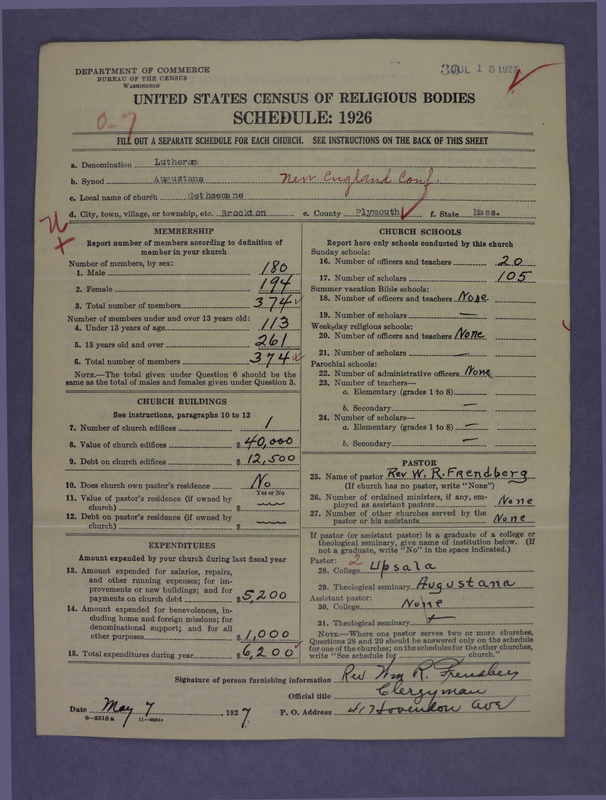 DEPARTMENT OF COMMERCE
BUREAU OF THE CENSUS
WASHINGTON
30 JUL 15 1927
UNITED STATES CENSUS OF RELIGIOUS BODIES
SCHEDULE: 1926
0-7
FILL OUT A SEPARATE SCHEDULE FOR EACH CHURCH. SEE INSTRUCTIONS ON THE BACK OF THIS SHEET
a. Denomination Lutheran
b. Synod Augustana New England Conf.
c. Local name of church Gethsemane
d. City, town, village, or township, etc. Brockton e. County Plymouth f. State Mass.
MEMBERSHIP
Report number of members according to definition of
member in your church
Number of members, by sex:
1. Male 180
2. Female 194
3. Total number of members 374
Number of members under and over 13 years old:
4. Under 13 years of age 113
5. 13 years old and over 261
6. Total number of members 374
NOTE.—The total given under Question 6 should be the
same as the total of males and females given under Question 3.
CHURCH BUILDINGS
See instructions, paragraphs 10 to 12
7. Number of church edifices 1
8. Value of church edifices $40,000
9. Debt on church edifices $12,500
10. Does church own pastor's residence? No
Yes or No
11. Value of pastor's residence (if owned by
church) $
12. Debt on pastor's residence (if owned by
church) $
EXPENDITURES
Amount expended by your church during last fiscal year
13. Amount expended for salaries, repairs,
and other running expenses; for im-
provements or new buildings; and for
payments on church debt $5,200
14. Amount expended for benevolences, in-
cluding home and foreign missions; for
denominational support; and for all
other purposes $1,000
15. Total expenditures during year $6,200
CHURCH SCHOOLS
Report here only schools conducted by this church
Sunday schools:
16. Number of officers and teachers 20
17. Number of scholars 105
Summer vacation Bible schools:
18. Number of officers and teachers None
19. Number of scholars —
Weekday religious schools:
20. Number of officers and teachers None
21. Number of scholars —
Parochial schools:
22. Number of administrative officers None
23. Number of teachers—
a. Elementary (grades 1 to 8) —
b. Secondary —
24. Number of scholars—
a. Elementary (grades 1 to 8) —
b. Secondary —
PASTOR
25. Name of pastor Rev W. R. Frendberg
(If church has no pastor, write "None")
26. Number of ordained ministers, if any, em-
ployed as assistant pastors None
27. Number of other churches served by the
pastor or his assistants None
If pastor (or assistant pastor) is a graduate of a college or
theological seminary, give name of institution below. (If
not a graduate, write "No" in the space indicated.)
Pastor: 2
28. College Upsala
29. Theological seminary Augustana
Assistant pastor:
30. College None
31. Theological seminary —
NOTE.—Where one pastor serves two or more churches,
Questions 28 and 29 should be answered only on the schedule
for one of the churches; on the schedules for the other churches,
write "See schedule for church."
Signature of person furnishing information Rev Wm R. Frendberg
Official title Clergyman
Date May 7, 1927. P. O. Address 41 Hovendon Ave
8-5518a 11-9034